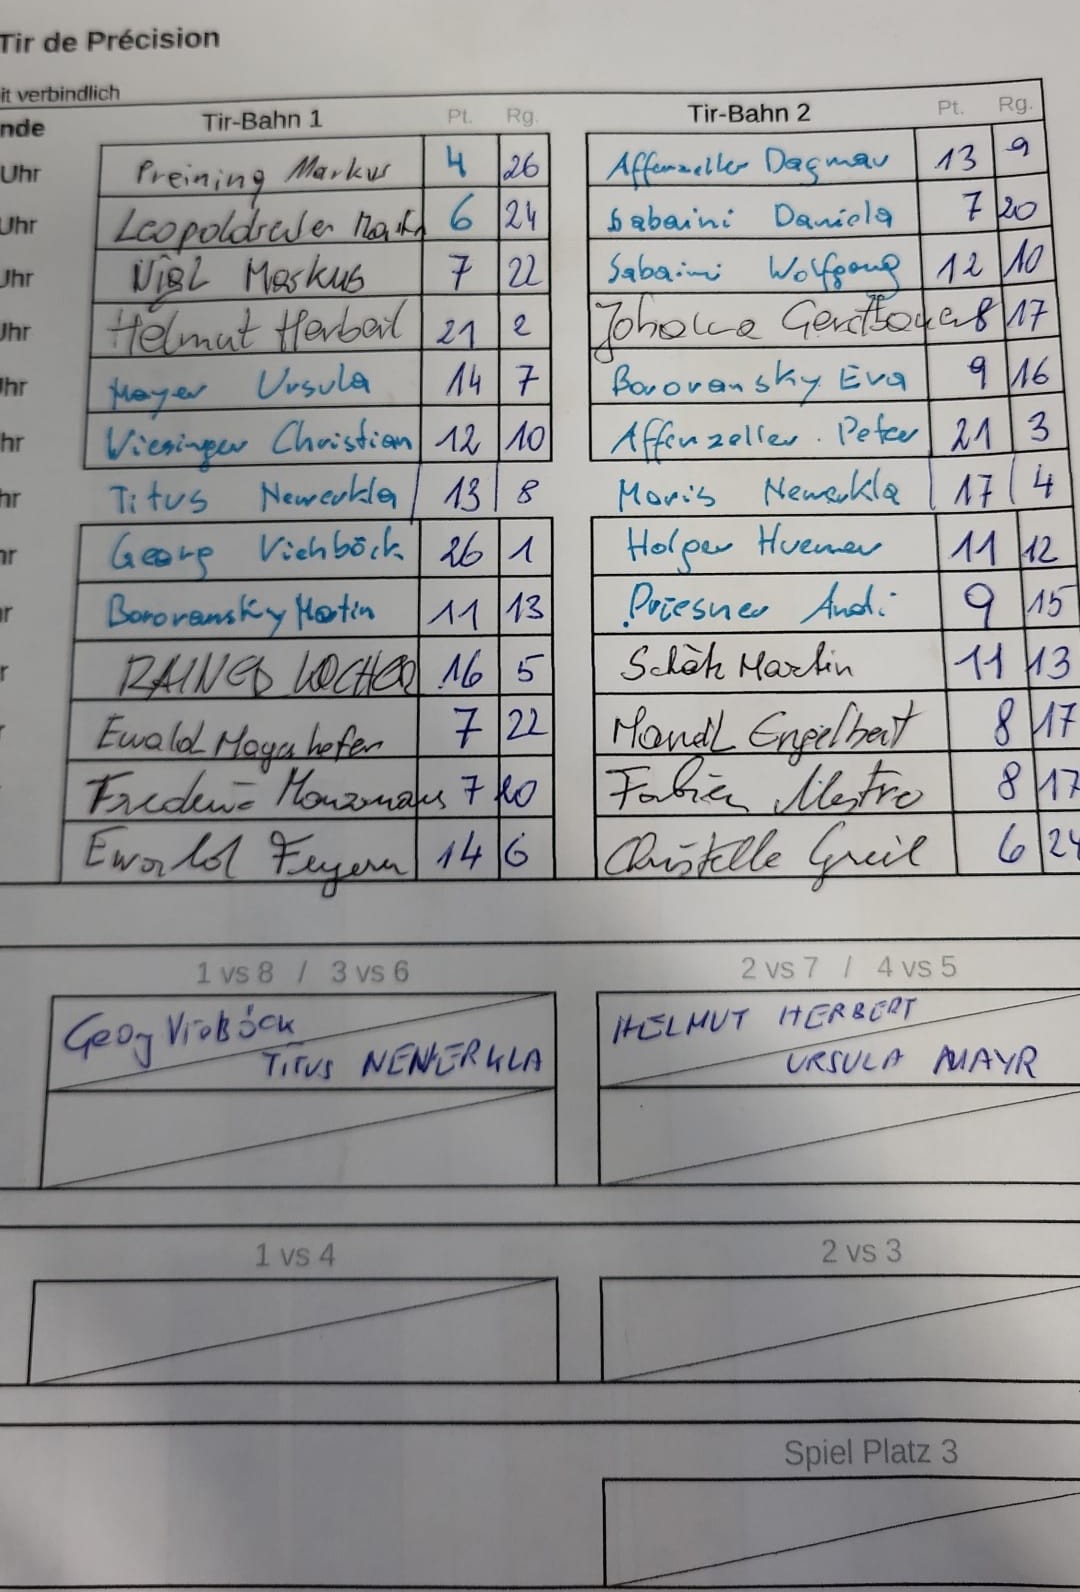 Tir de Précision
it verbindlich
nde Tir-Bahn 1 Pt. Rg. Tir-Bahn 2 Pt. Rg.
Uhr Preining Markus 4 26 Affenzeller Dagmar 13 9
Uhr 6 24 Sabaini Daniela 7 20
Uhr Markus 7 22 Sabaini Wolfgang 12 10
Uhr Helmut Herbert 21 2 8 17
hr Mayer Ursula 14 7 Borovansky Eva 9 16
hr Wiesinger Christian 12 10 Affenzeller Peter 21 3
hr Titus Newerkla 13 8 Moris Newerkla 17 4
nr Georg Viehböck 26 1 Holger Huemer 11 12
r Borovansky Martin 11 13 Priesner Andi 9 15
r RAINER LOCHER 16 5 Schätz Martin 11 13
Ewald Mayrhofer 7 22 Mandl Engelbert 8 17
7 20 Fabien Mestre 8 17
Ewald 14 6 Christelle Greil 6 24
1 vs 8 / 3 vs 6 2 vs 7 / 4 vs 5
Georg Viehböck HELMUT HERBERT
TITUS NEWERKLA URSULA MAYR
1 vs 4 2 vs 3
Spiel Platz 3